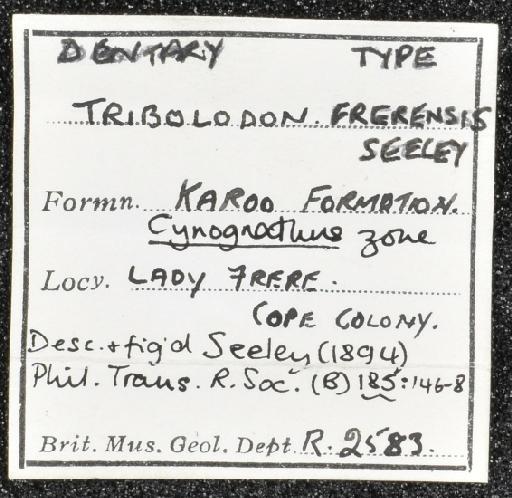 DENTARY TYPE
TRIBOLODON. FRERENSIS
SEELEY
Formn. KAROO FORMATION.
Cynognathus zone
Locy. LADY FRERE.
COPE COLONY.
Desc. + fig'd Seeley (1894)
Phil. Trans. R. Soc. (B) 185: 146-8
Brit. Mus. Geol. Dept. R. 2583.